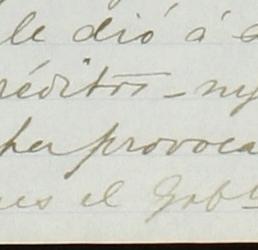 le dió á
réditos - ny
her provoca
es el Gobº